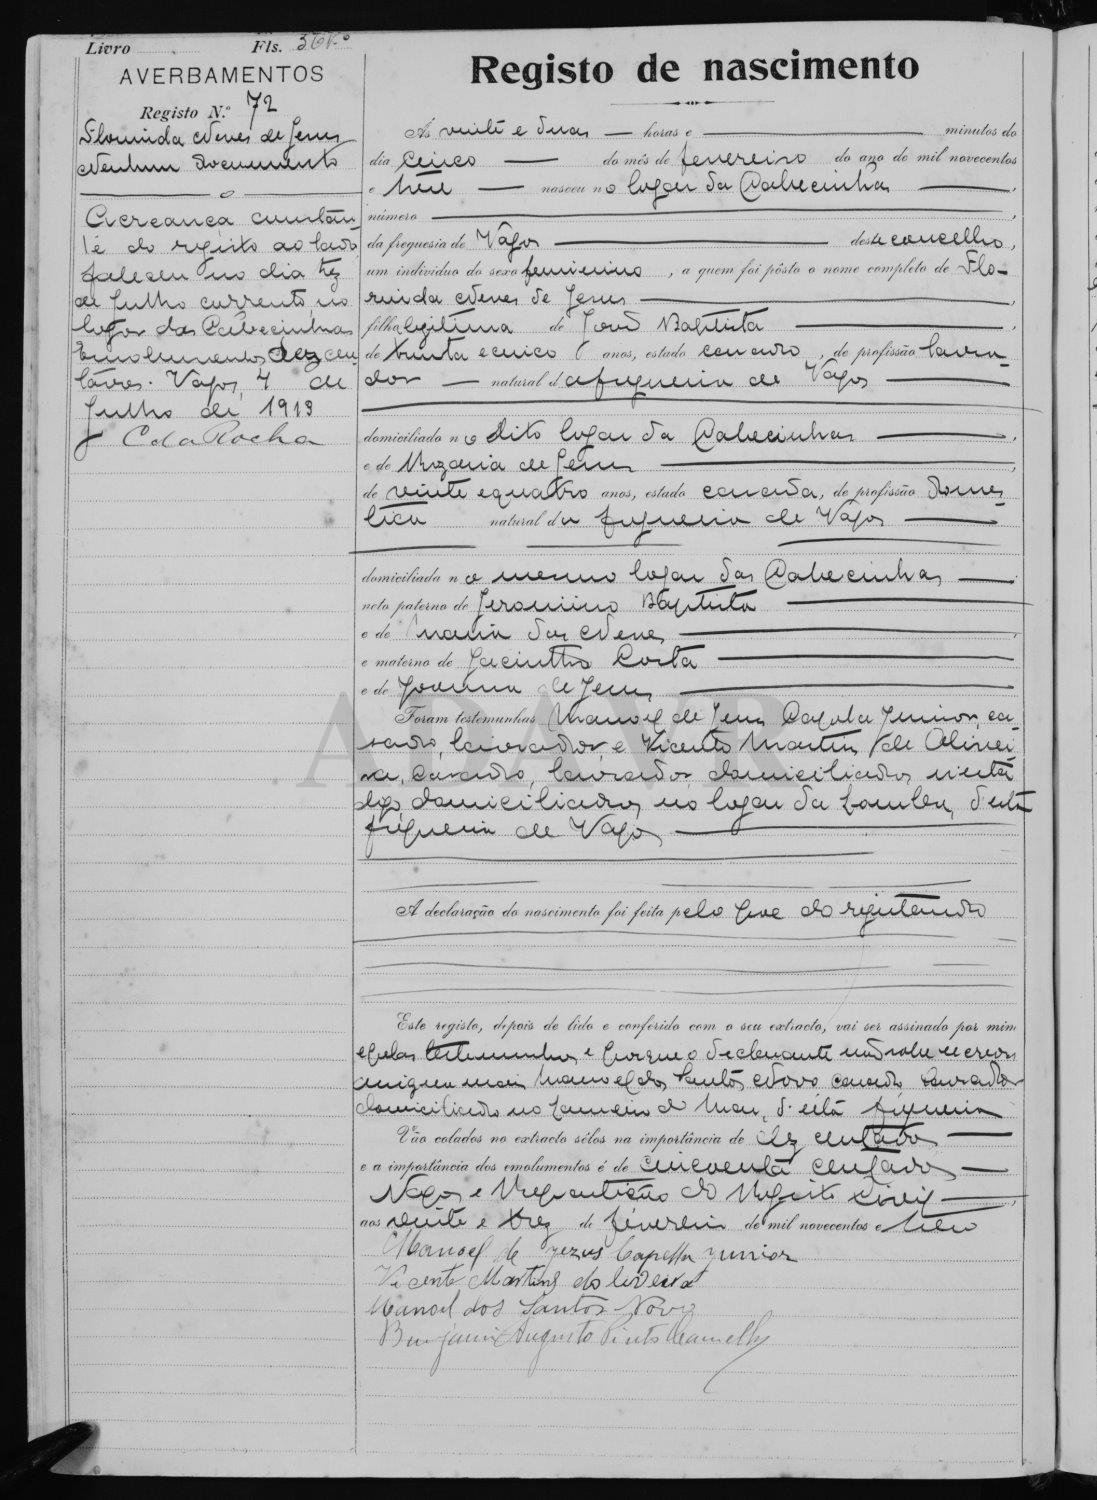 Livro Fls. 36 v.º
AVERBAMENTOS
Registo N.º 72
Florinda Neves de Jesus
Nenhum Documento
A creança constan-
te do registo ao lado
faleceu no dia trez
de Julho currente, no
logar das Cabecinhas
Emolumentos dez cen-
tavos. Vagos, 4 de
Julho de 1913
C da Rocha
Registo de nascimento
Ás vinte e duas horas e minutos do
dia cinco do mês de fevereiro do ano de mil novecentos
e treze nasceu no logar da Cabecinhas
número
da freguesia de Vagos deste concelho,
um indivíduo do sexo feminino, a quem foi pôsto o nome completo de Flo-
rinda Neves de Jesus
filha legitima de José Baptista
de trinta e cinco anos, estado casado, de profissão lavra-
dor natural da freguesia de Vagos
domiciliado no dito logar da Cabecinhas
e de Rozaria de Jesus
de vinte e quatro anos, estado casada, de profissão domes-
tica natural da freguesia de Vagos
domiciliada no mesmo logar das Cabecinhas
neto paterno de Jeronimo Baptista
e de Maria das Neves
e materno de Jacintho Costa
e de Joanna de Jesus
Foram testemunhas Manoel de Jesus Capela Junior, ca-
sado, lavrador e Vicente Martins de Olivei-
ra, casado, lavrador, domiciliados nesta
digo, domiciliados no logar da Lomba, desta
freguesia de Vagos
A declaração do nascimento foi feita pelo pae do registando
Este registo, depois de lido e conferido com o seu extracto, vai ser assinado por mim
e pelas testemunhas e porque o declarante não sabe escrever
assigna mais Manoel dos Santos Novo casado lavrador
domiciliado no do Mar, d'esta freguesia
Vão colados no extracto sêlos na importância de dez centavos
e a importância dos emolumentos é de cincoenta centavos
Vagos e Repartição do Registo Civil
aos vinte e trez de fevereiro de mil novecentos e treze
Manoel de Jezus Capella Junior
Vicente Martins de
Manoel dos Santos Novo
Benjamin Augusto Pinto
ADAVR